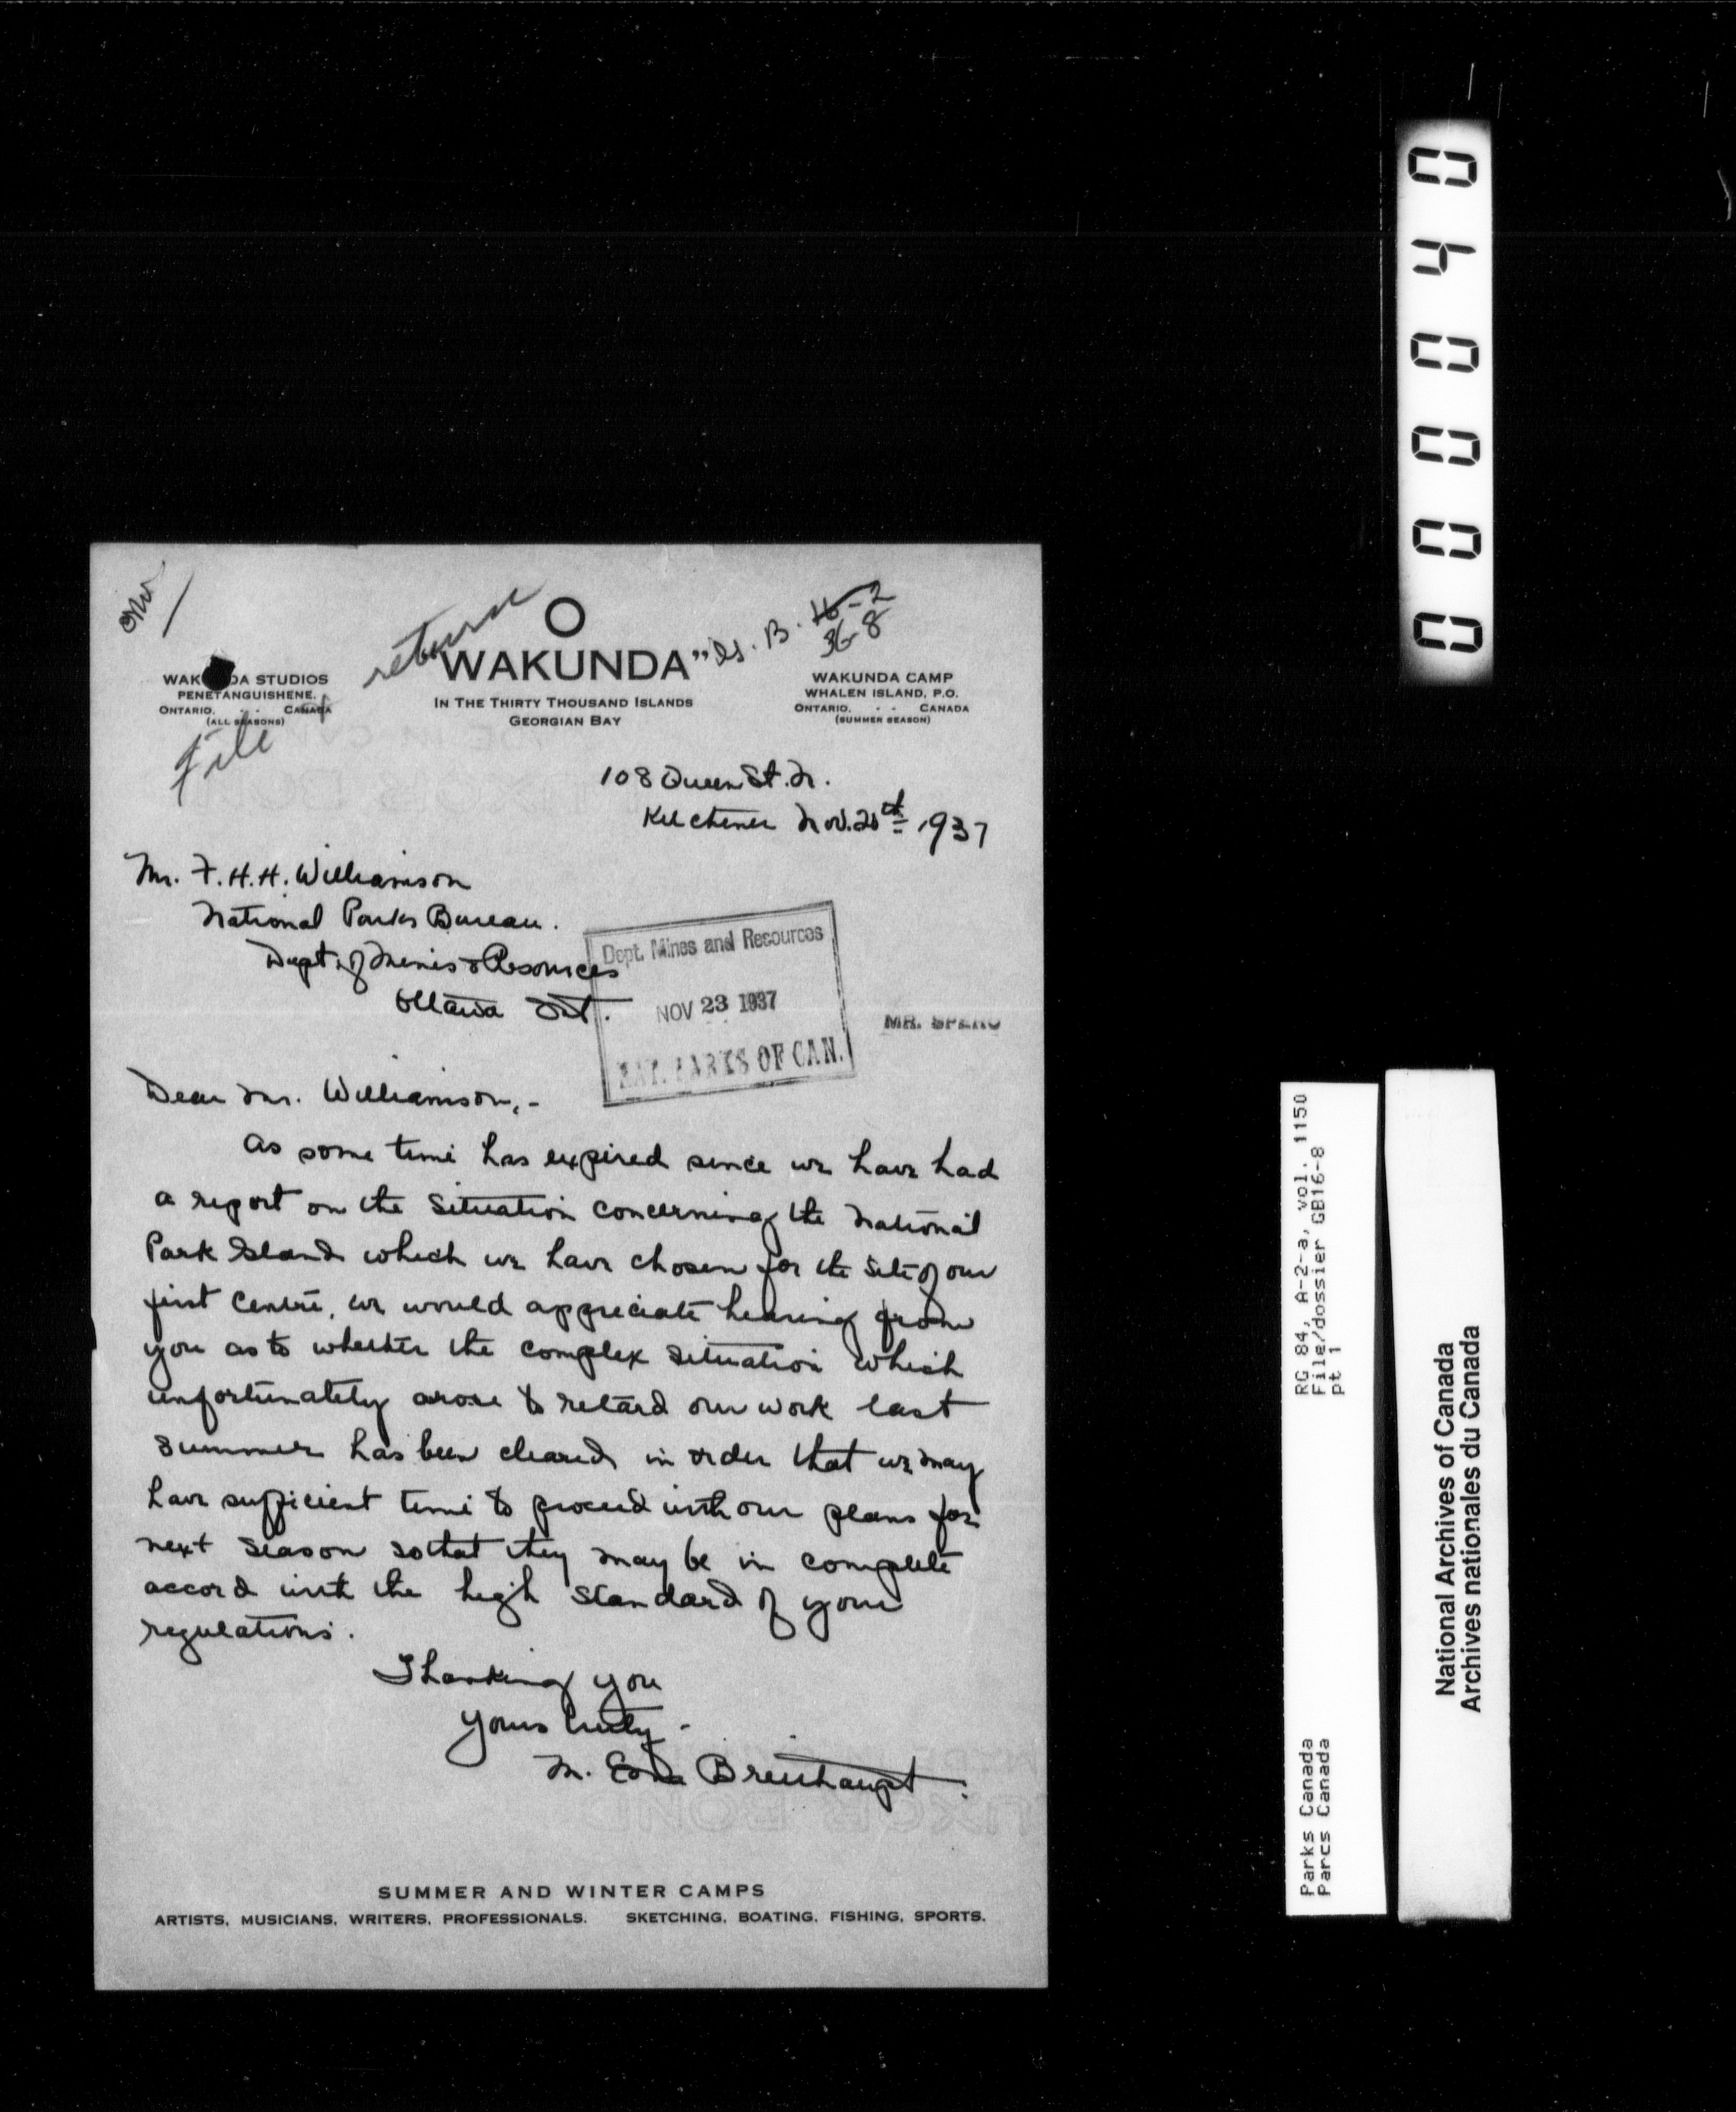 return
"WAKUNDA"
G. B. 16-2
36-8
WAKUNDA STUDIOS
PENETANGUISHENE,
ONTARIO. - - CANADA
(ALL SEASONS)
IN THE THIRTY THOUSAND ISLANDS
GEORGIAN BAY
WAKUNDA CAMP
WHALEN ISLAND, P.O.
ONTARIO. - - CANADA
(SUMMER SEASON)
File
108 Queen St. N.
Kitchener Nov. 20th 1937
Mr. F. H. H. Williamson
National Parks Bureau.
Dept. of Mines & Resources
Ottawa Ont.
Dept. Mines and Resources
NOV 23 1937
NAT. PARKS OF CAN.
MR. SPERO
Dear Mr. Williamson,-
As some time has expired since we have had
a report on the situation concerning the National
Park Island which we have chosen for the site of our
first centre, we would appreciate hearing from
you as to whether the complex situation which
unfortunately arose to retard our work last
summer has been cleared in order that we may
have sufficient time to proceed with our plans for
next season so that they may be in complete
accord with the high standard of your
regulations.
Thanking you
Yours truly -
M. Edna Breithaupt.
SUMMER AND WINTER CAMPS
ARTISTS, MUSICIANS, WRITERS, PROFESSIONALS. SKETCHING, BOATING, FISHING, SPORTS.
000040
RG 84, A-2-a, vol. 1150
File/dossier GB16-8
pt 1
Parks Canada
Parcs Canada
National Archives of Canada
Archives nationales du Canada